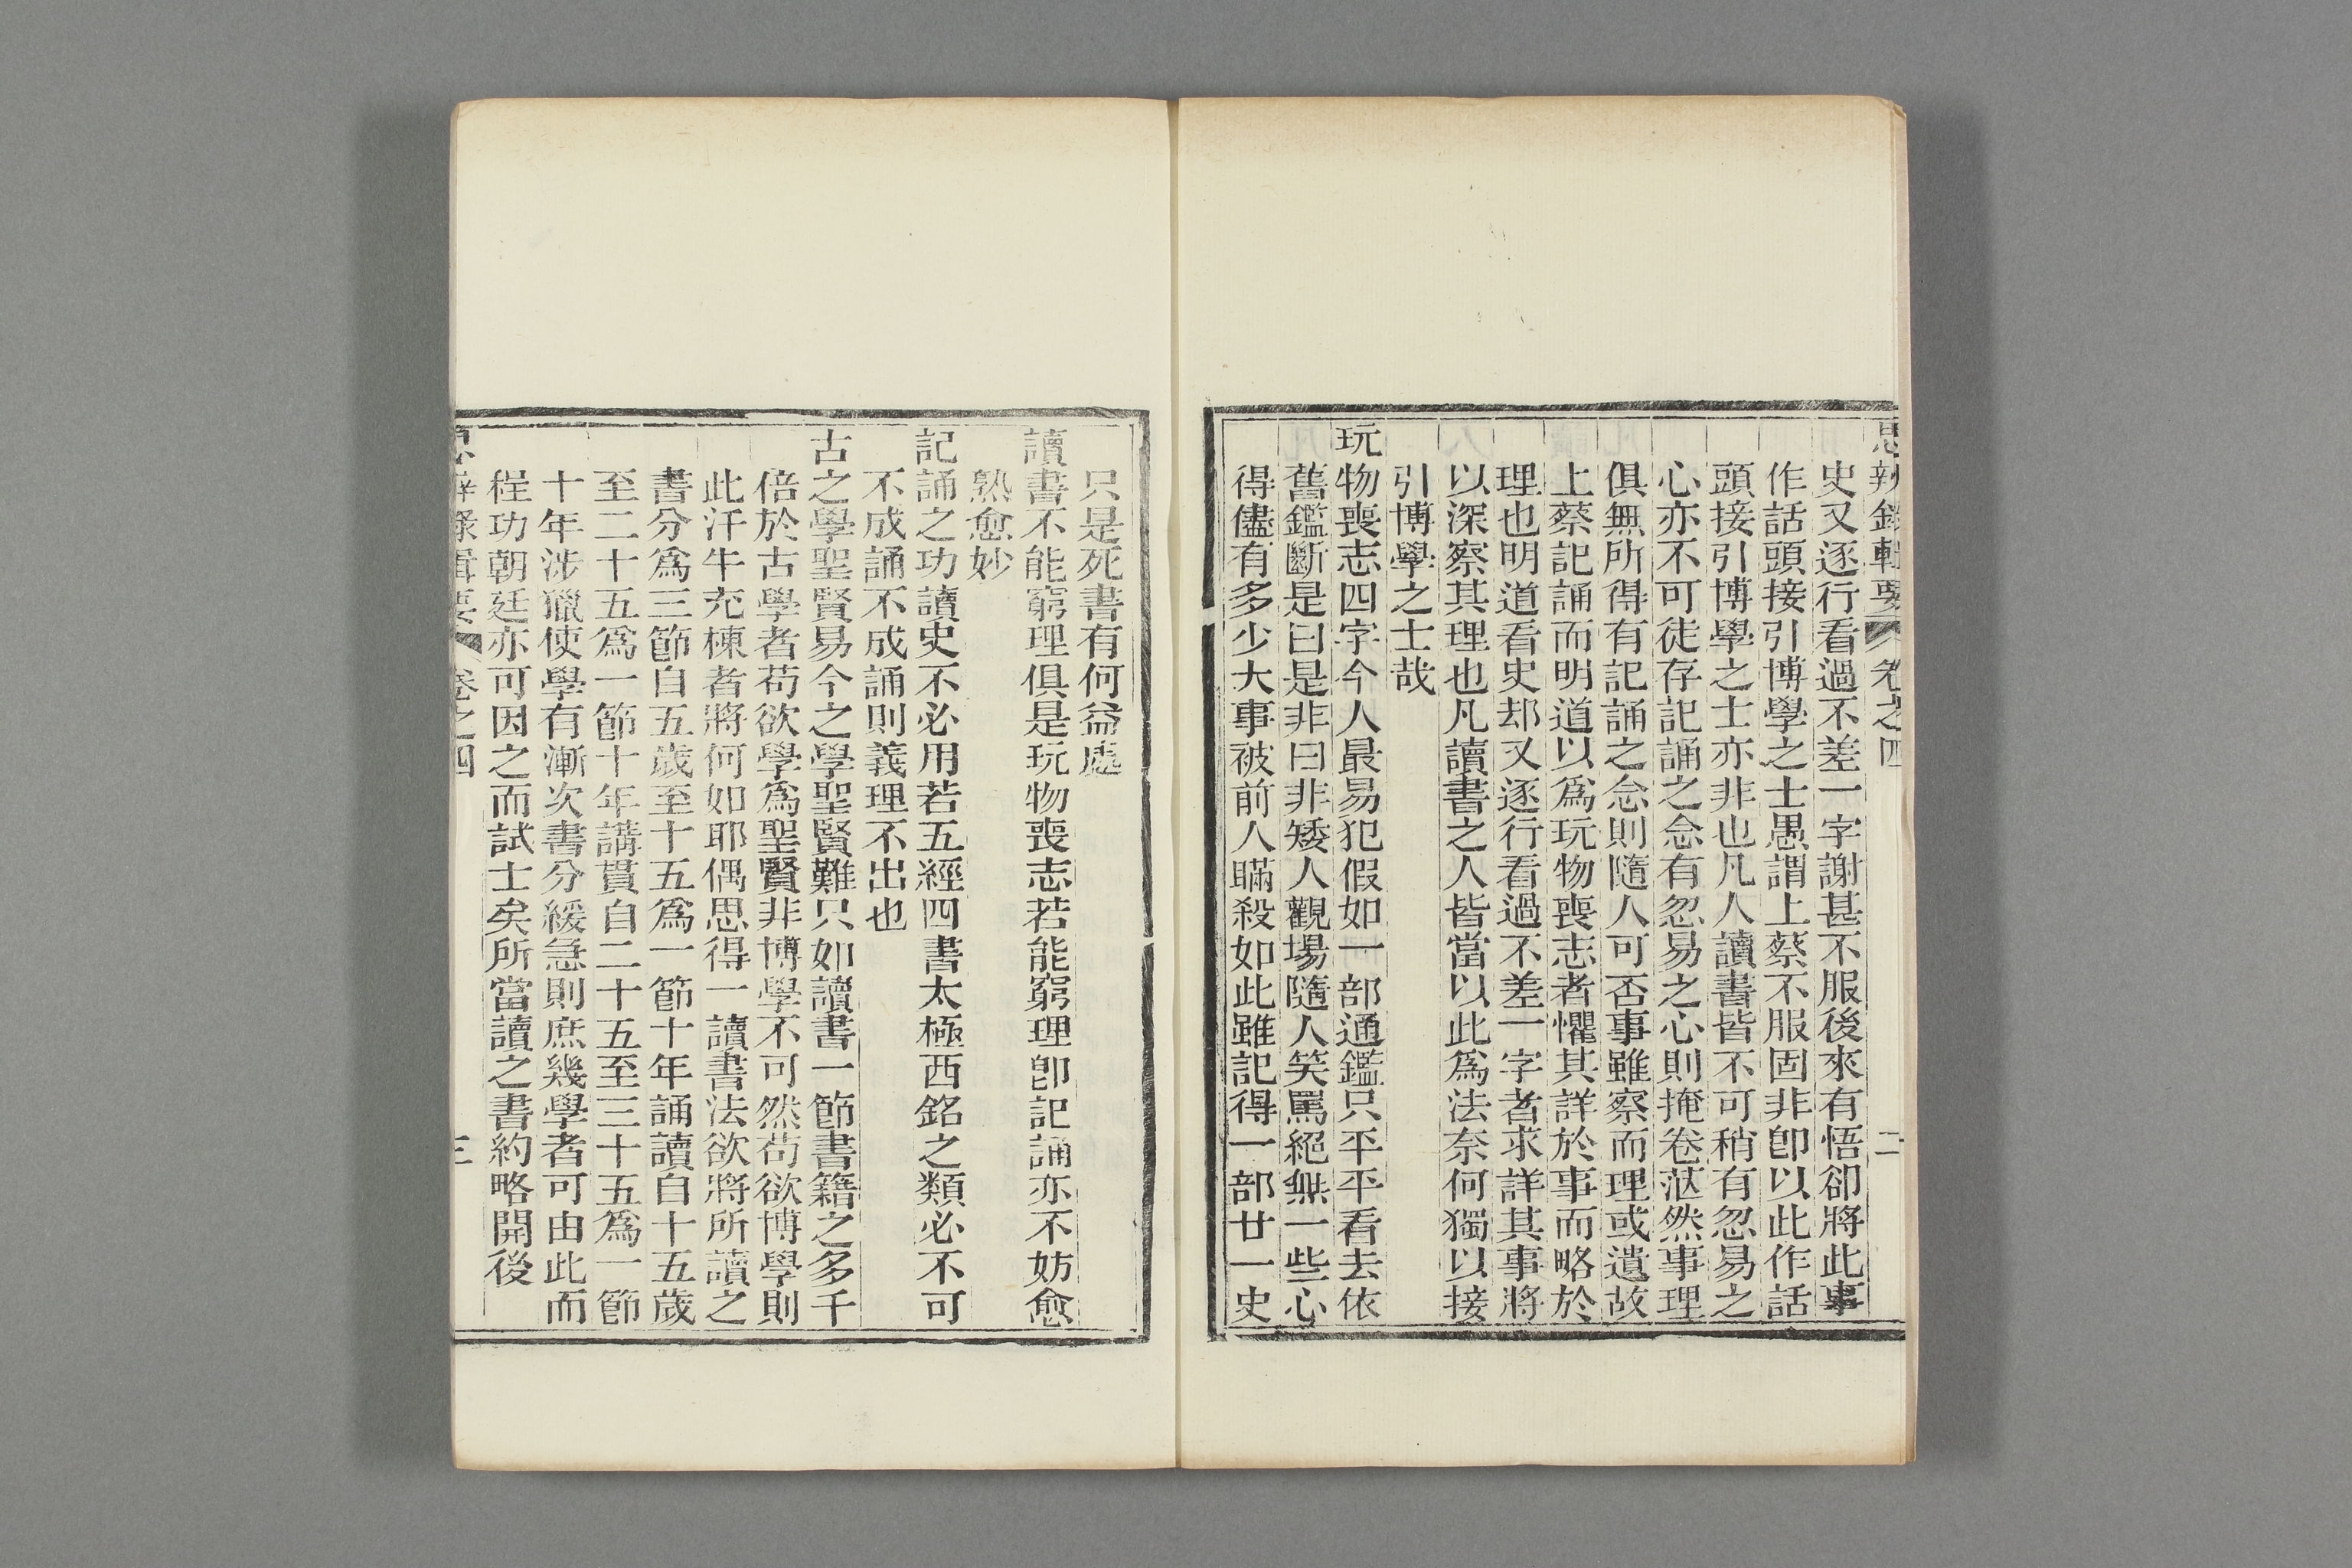 思辨錄輯要 卷之四 二
史又逐行看過不差一字謝甚不服後來有悟卻將此事
作話頭接引博學之士愚謂上蔡不服固非卽以此作話
頭接引博學之士亦非也凡人讀書皆不可稍有忽易之
心亦不可徒存記誦之念有忽易之心則掩卷茫然事理
俱無所得有記誦之念則隨人可否事雖察而理或遺故
上蔡記誦而明道以爲玩物喪志者懼其詳於事而略於
理也明道看史却又逐行看過不差一字者求詳其事將
以深察其理也凡讀書之人皆當以此爲法奈何獨以接
引博學之士哉
玩物喪志四字今人最易犯假如一部通鑑只平平看去依
舊鑑斷是曰是非曰非矮人觀場隨人笑罵絕無一些心
得儘有多少大事被前人瞞殺如此雖記得一部廿一史
只是死書有何益處
讀書不能窮理俱是玩物喪志若能窮理卽記誦亦不妨愈
熟愈妙
記誦之功讀史不必用若五經四書太極西銘之類必不可
不成誦不成誦則義理不出也
古之學聖賢易今之學聖賢難只如讀書一節書籍之多千
倍於古學者苟欲學爲聖賢非博學不可然苟欲博學則
此汗牛充棟者將何如耶偶思得一讀書法欲將所讀之
書分爲三節自五歲至十五爲一節十年誦讀自十五歲
至二十五爲一節十年講貫自二十五至三十五爲一節
十年涉獵使學有漸次書分緩急則庶幾學者可由此而
程功朝廷亦可因之而試士矣所當讀之書約略開後
思辨錄輯要 卷之四 三